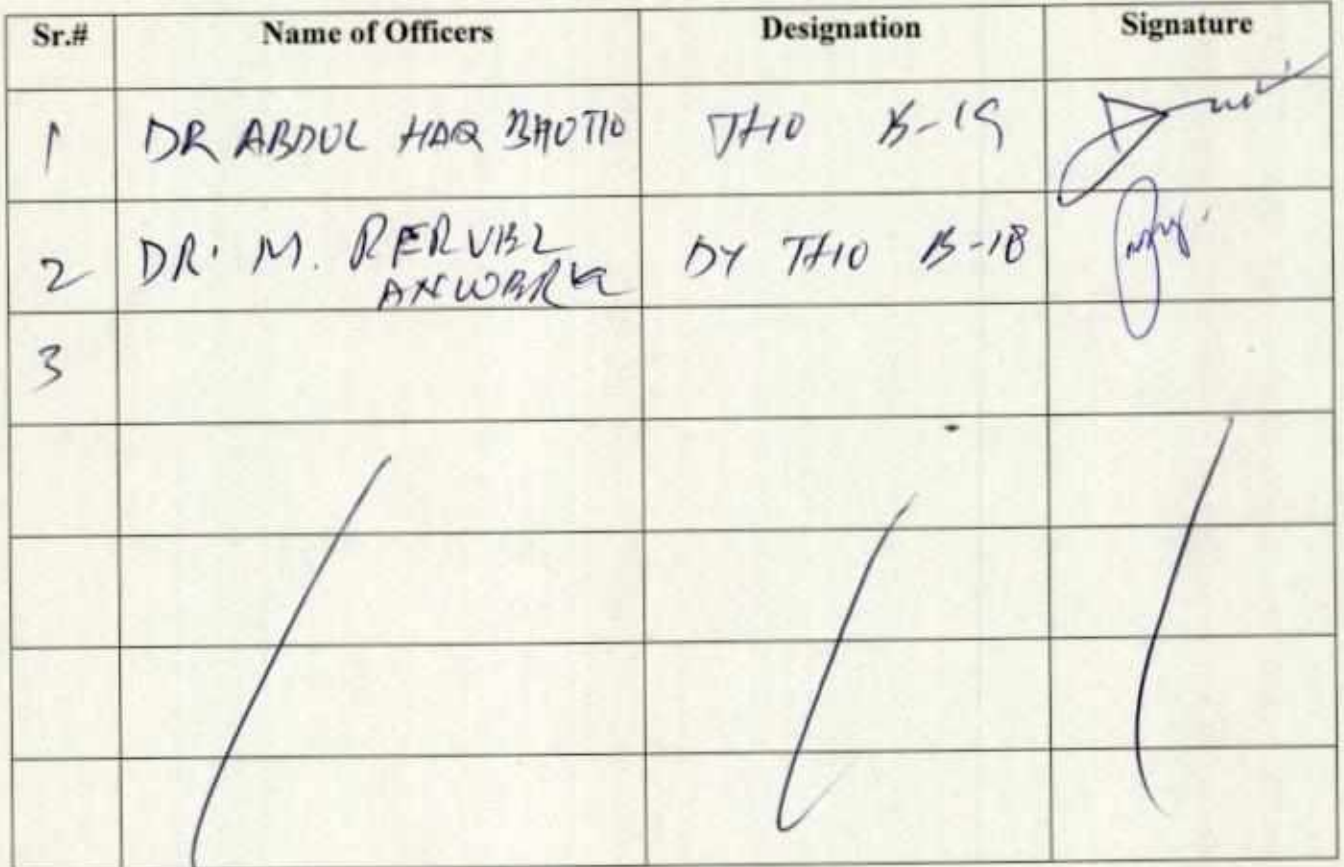 Sr.# Name of Officers Designation Signature
1 DR ABDUL HAQ BHUTTO THO B-19
2 DR. M. PERVEZ DY THO B-18
3